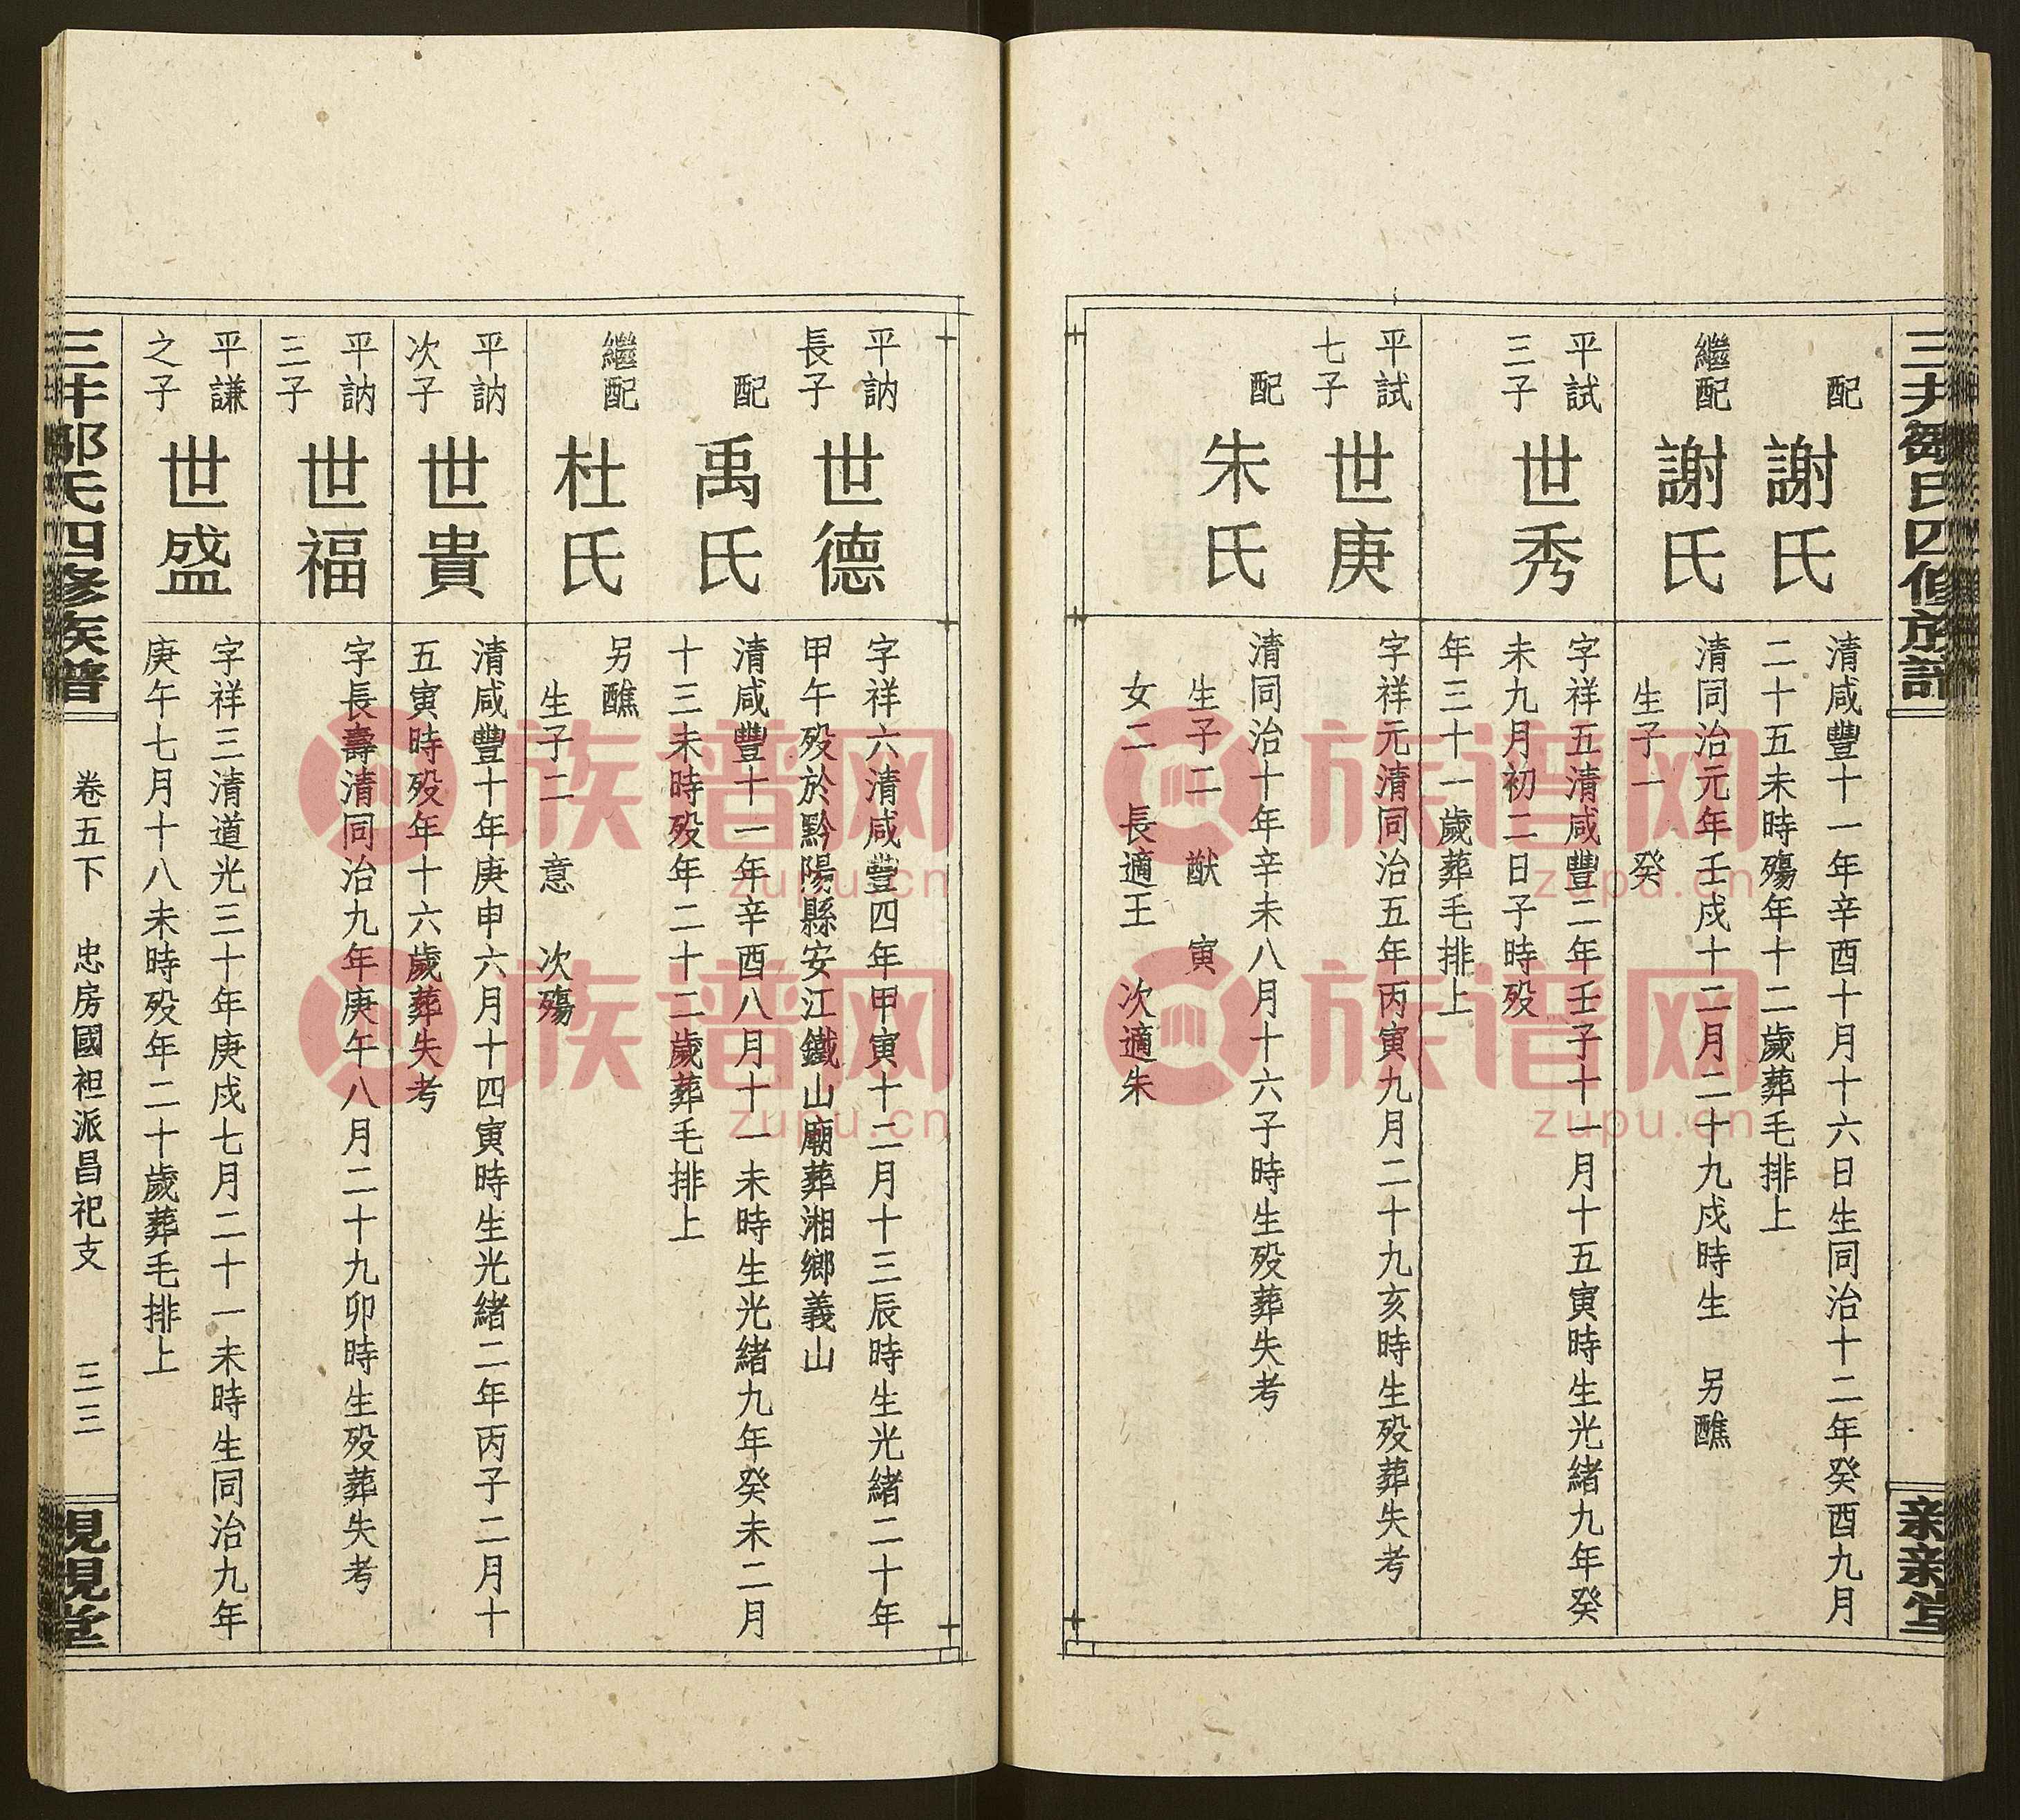 三井鄒氏四修族譜
親親堂
配
謝氏
清咸豐十一年辛酉十月十六日生同治十二年癸酉九月
二十五未時殤年十二歲葬毛排上
繼配
謝氏
清同治元年壬戌十二月二十九戌時生 另醮
生子一 癸
平試
三子
世秀
字祥五清咸豐二年壬子十一月十五寅時生光緒九年癸
未九月初二日子時歿
年三十一歲葬毛排上
平試
七子
世庚
字祥元清同治五年丙寅九月二十九亥時生歿葬失考
配
朱氏
清同治十年辛未八月十六子時生歿葬失考
生子二 猷 寅
女二 長適王 次適朱
平訥
長子
世德
字祥六清咸豐四年甲寅十二月十三辰時生光緒二十年
甲午歿於黔陽縣安江鐵山廟葬湘鄉義山
配
禹氏
清咸豐十一年辛酉八月十一未時生光緒九年癸未二月
十三未時歿年二十二歲葬毛排上
繼配
杜氏
另醮
生子二 意 次殤
平訥
次子
世貴
清咸豐十年庚申六月十四寅時生光緒二年丙子二月十
五寅時歿年十六歲葬失考
平訥
三子
世福
字長壽清同治九年庚午八月二十九卯時生歿葬失考
平謙
之子
世盛
字祥三清道光三十年庚戌七月二十一未時生同治九年
庚午七月十八未時歿年二十歲葬毛排上
三井鄒氏四修族譜
卷五下 忠房國袒派昌祀支 三三
親親堂
族谱网
zupu.cn
族谱网
zupu.cn
族谱网
zupu.cn
族谱网
zupu.cn